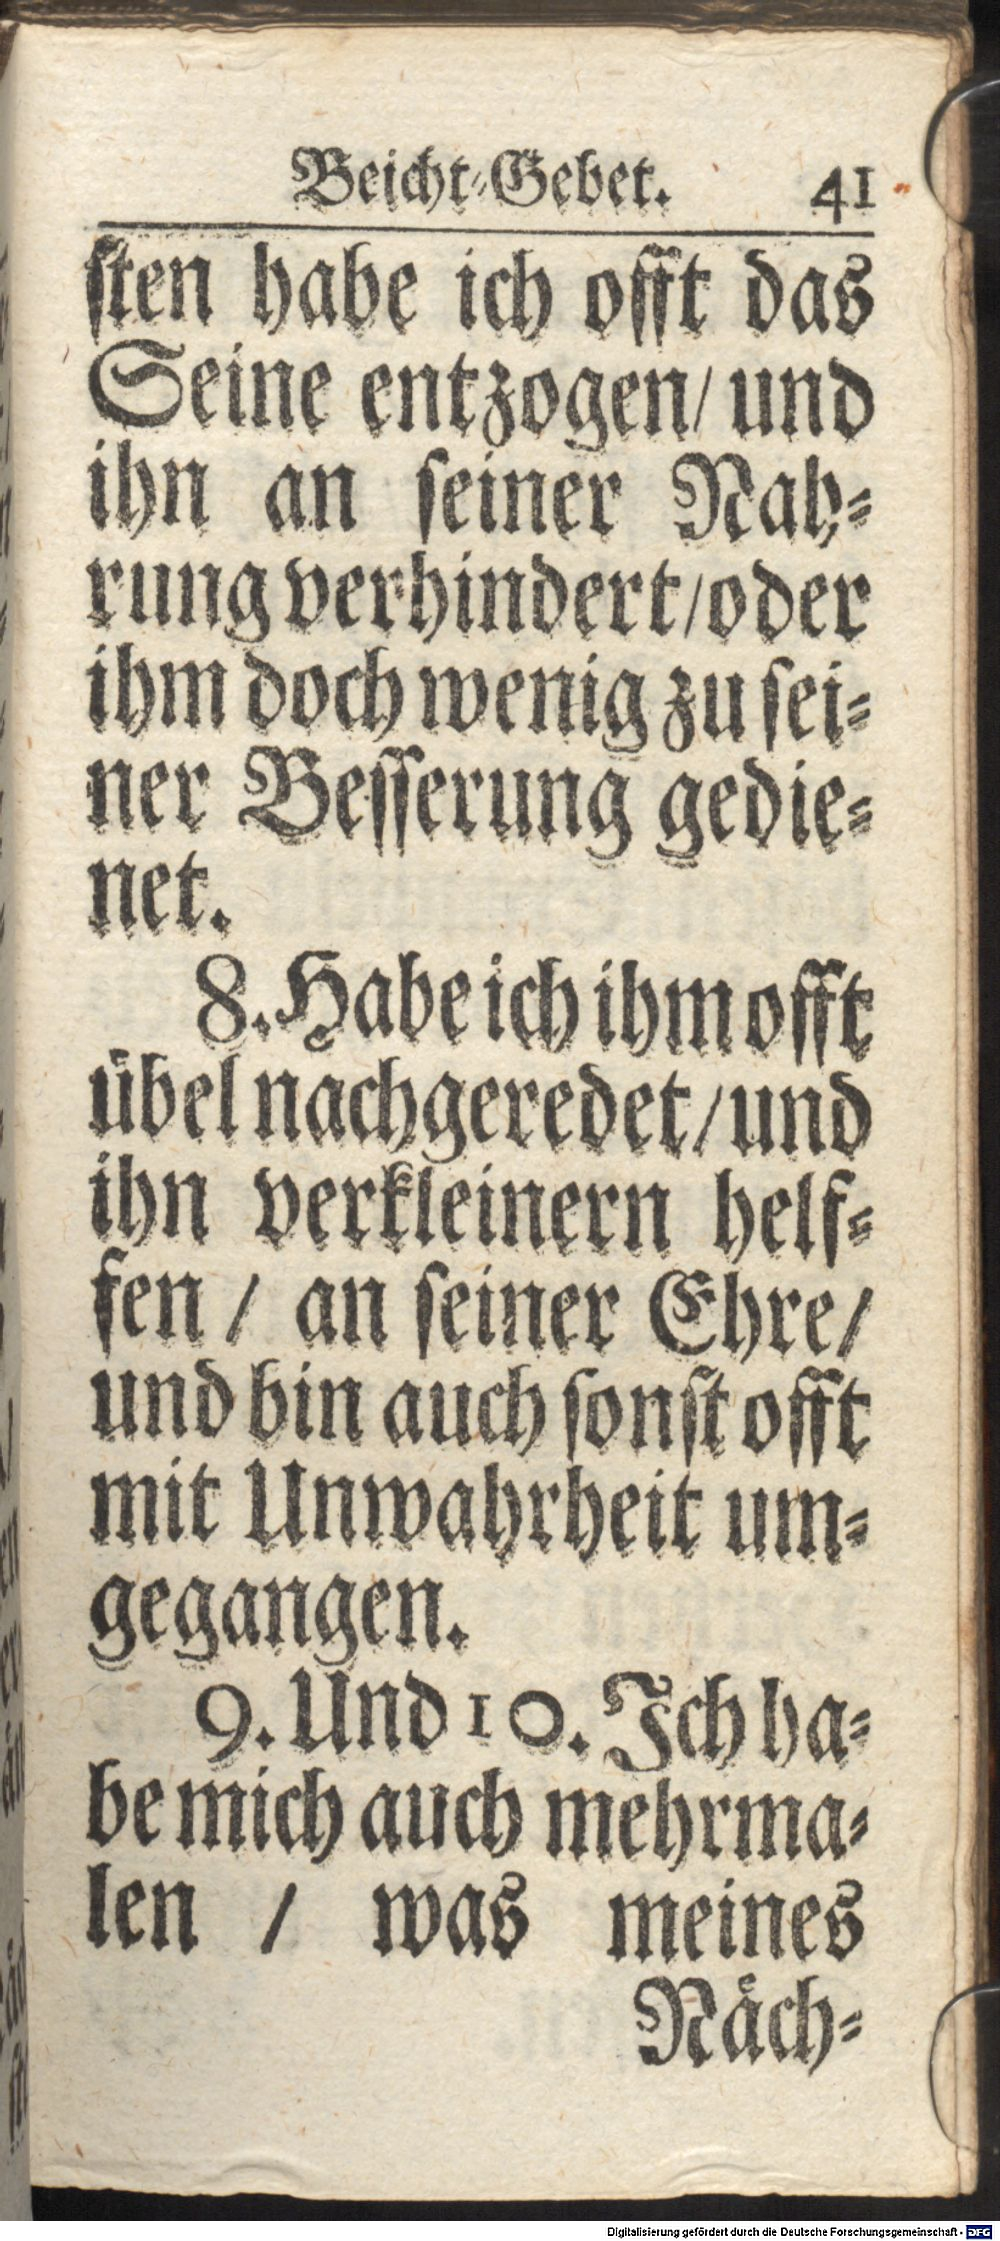 Beicht-Gebet. 41
sten habe ich offt das
Seine entzogen/ und
ihn an seiner Nah-
rung verhindert/ oder
ihm doch wenig zu sei-
ner Besserung gedie-
net.
8. Habe ich ihm offt
übel nachgeredet/ und
ihn verkleinern helf-
fen / an seiner Ehre/
und bin auch sonst offt
mit Unwahrheit um-
gegangen.
9. Und 10. Ich ha-
be mich auch mehrma-
len / was meines
Näch-
Digitalisierung gefördert durch die Deutsche Forschungsgemeinschaft - DFG